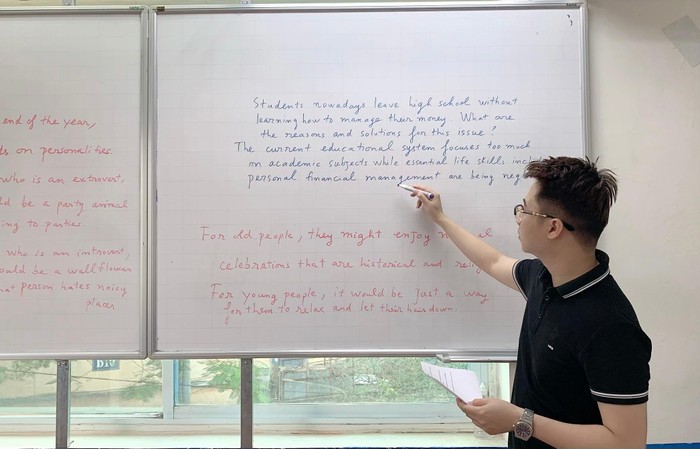 end of the year,
ds on personalities.
who is an extrovert,
ld be a party animal
ing to parties.
who is an introvert,
ould be a wallflower
hat person hates noisy
places
Students nowadays leave high school without
learning how to manage their money. What are
the reasons and solutions for this issue?
The current educational system focuses too much
on academic subjects while essential life skills inclu
personal financial management are being neg
For old people, they might enjoy
celebrations that are historical and relig
For young people, it would be just a way
for them to relax and let their hair down.